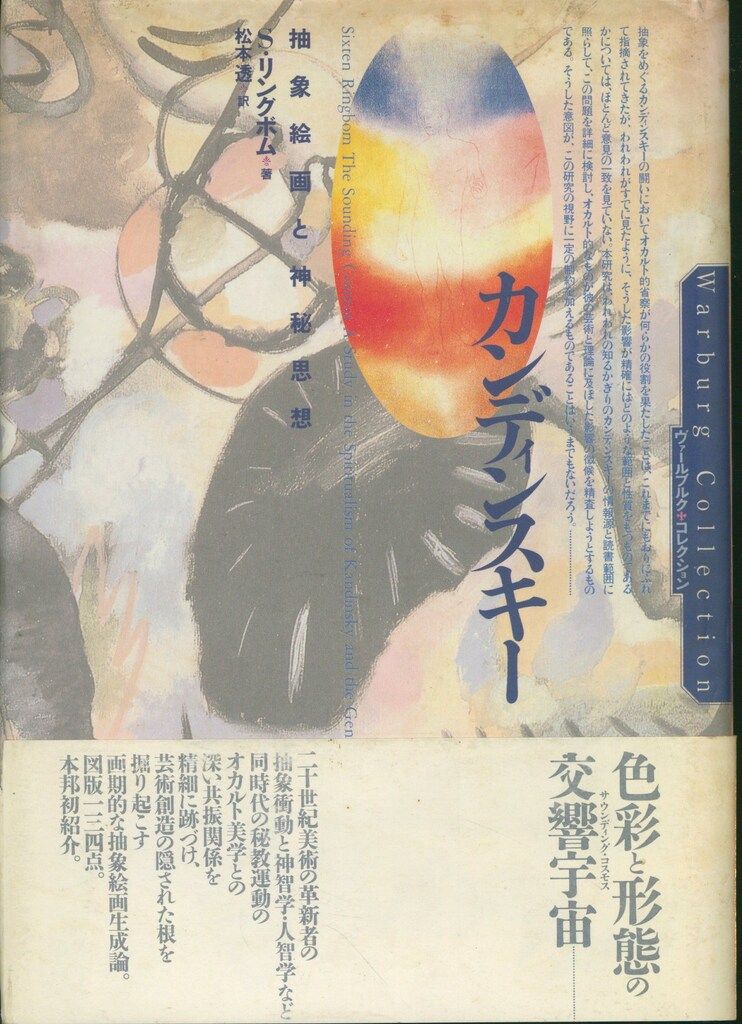 Warburg Collection
ヴァールブルク✤コレクション
抽象をめぐるカンディンスキーの闘いにおいてオカルト的省察が何らかの役割を果たしたことは、これまでにもおりにふれ
て指摘されてきたが、われわれがすでに見たように、そうした影響が精確にはどのような範囲と性質をもつものである
かについては、ほとんど意見の一致を見ていない。本研究は、われわれの知るかぎりのカンディンスキーの情報源と読書範囲に
照らして、この問題を詳細に検討し、オカルト的なものが彼の芸術と理論に及ぼした影響の徴候を精査しようとするもの
である。そうした意図が、この研究の視野に一定の制約を加えるものであることはいうまでもないだろう。…………
カンディンスキー
Sixten Ringbom The Sounding Cosmos A Study in the Spiritualism of Kandinsky and the Gen
抽象絵画と神秘思想
S・リングボム✤著
松本透✤訳
色彩と形態の
交響宇宙…………
サウンディング・コスモス
二十世紀美術の革新者の
抽象衝動と神智学・人智学など
同時代の秘教運動の
オカルト美学との
深い共振関係を
精細に跡づけ、
芸術創造の隠された根を
掘り起こす
画期的な抽象絵画生成論。
図版一三四点。
本邦初紹介。